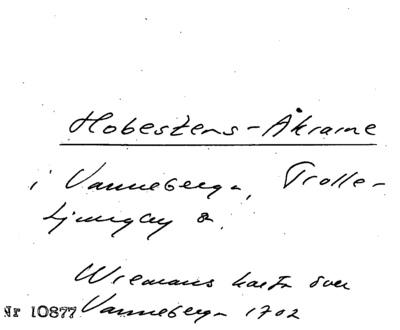 Hobestens-Åkrarne
i Vanneberga, Trolle-
Ljungby s.
Wiemans karta över
Nr 10877 Vanneberga 1702